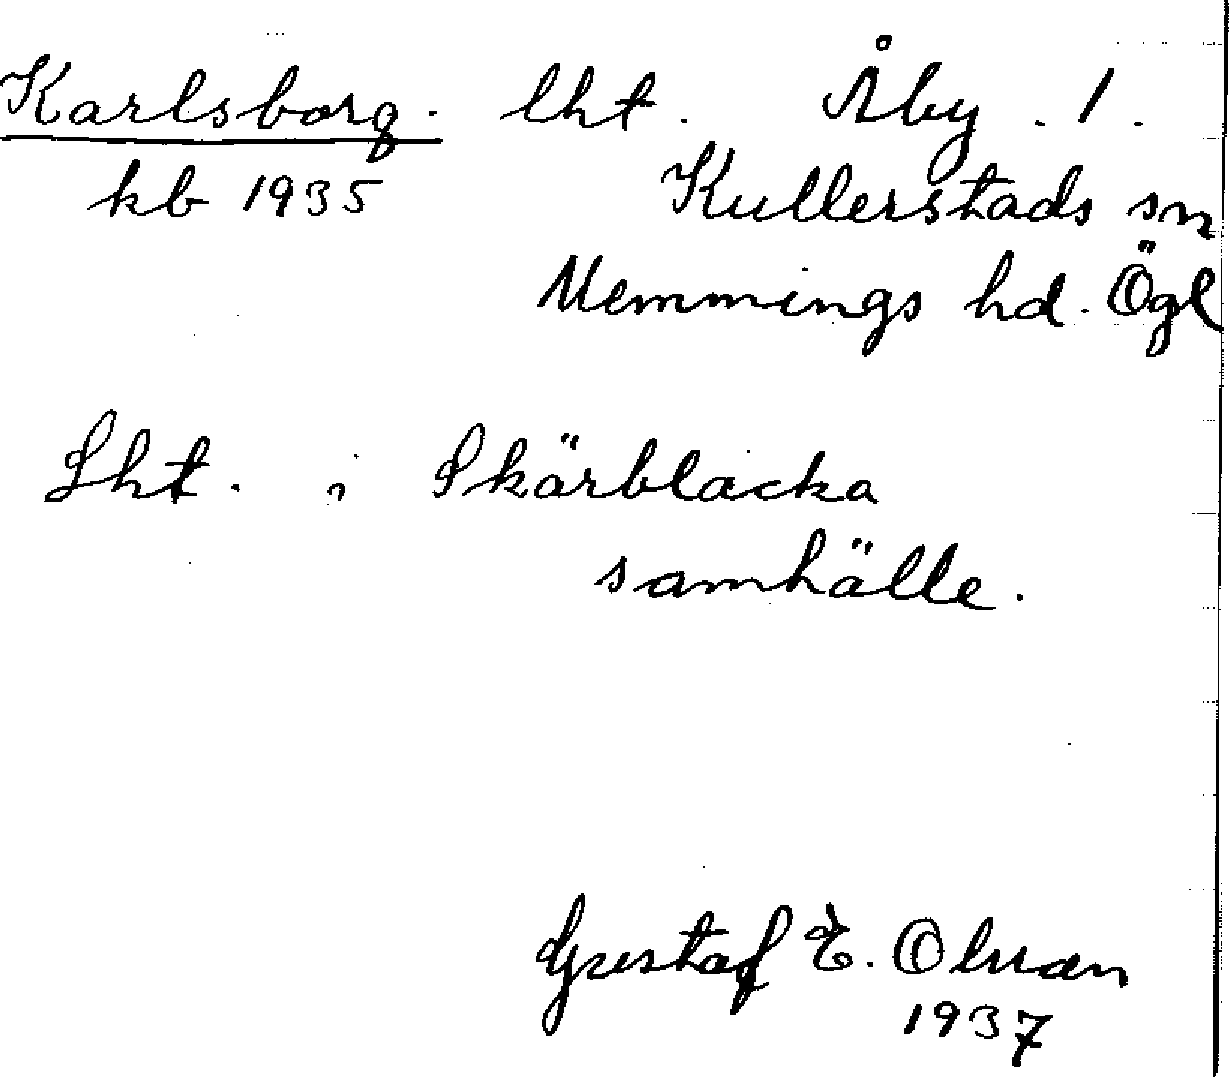 Karlsborg. lht. Åby. 1.
kb 1935 Kullerstads sn
Memmings hd. Ögl
Lht. i Skärblacka
samhälle.
Gustaf E. Olman
1937